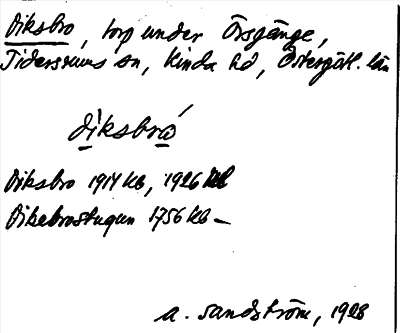 Diksbro, torp under Örsgänge,
Tidersrums sn, Kinda hd, Östergötl. län
diksbrò
Diksbro 1914 kb, 1926 kb
Dikebrostugun 1756 kb –
A. Sandström, 1928